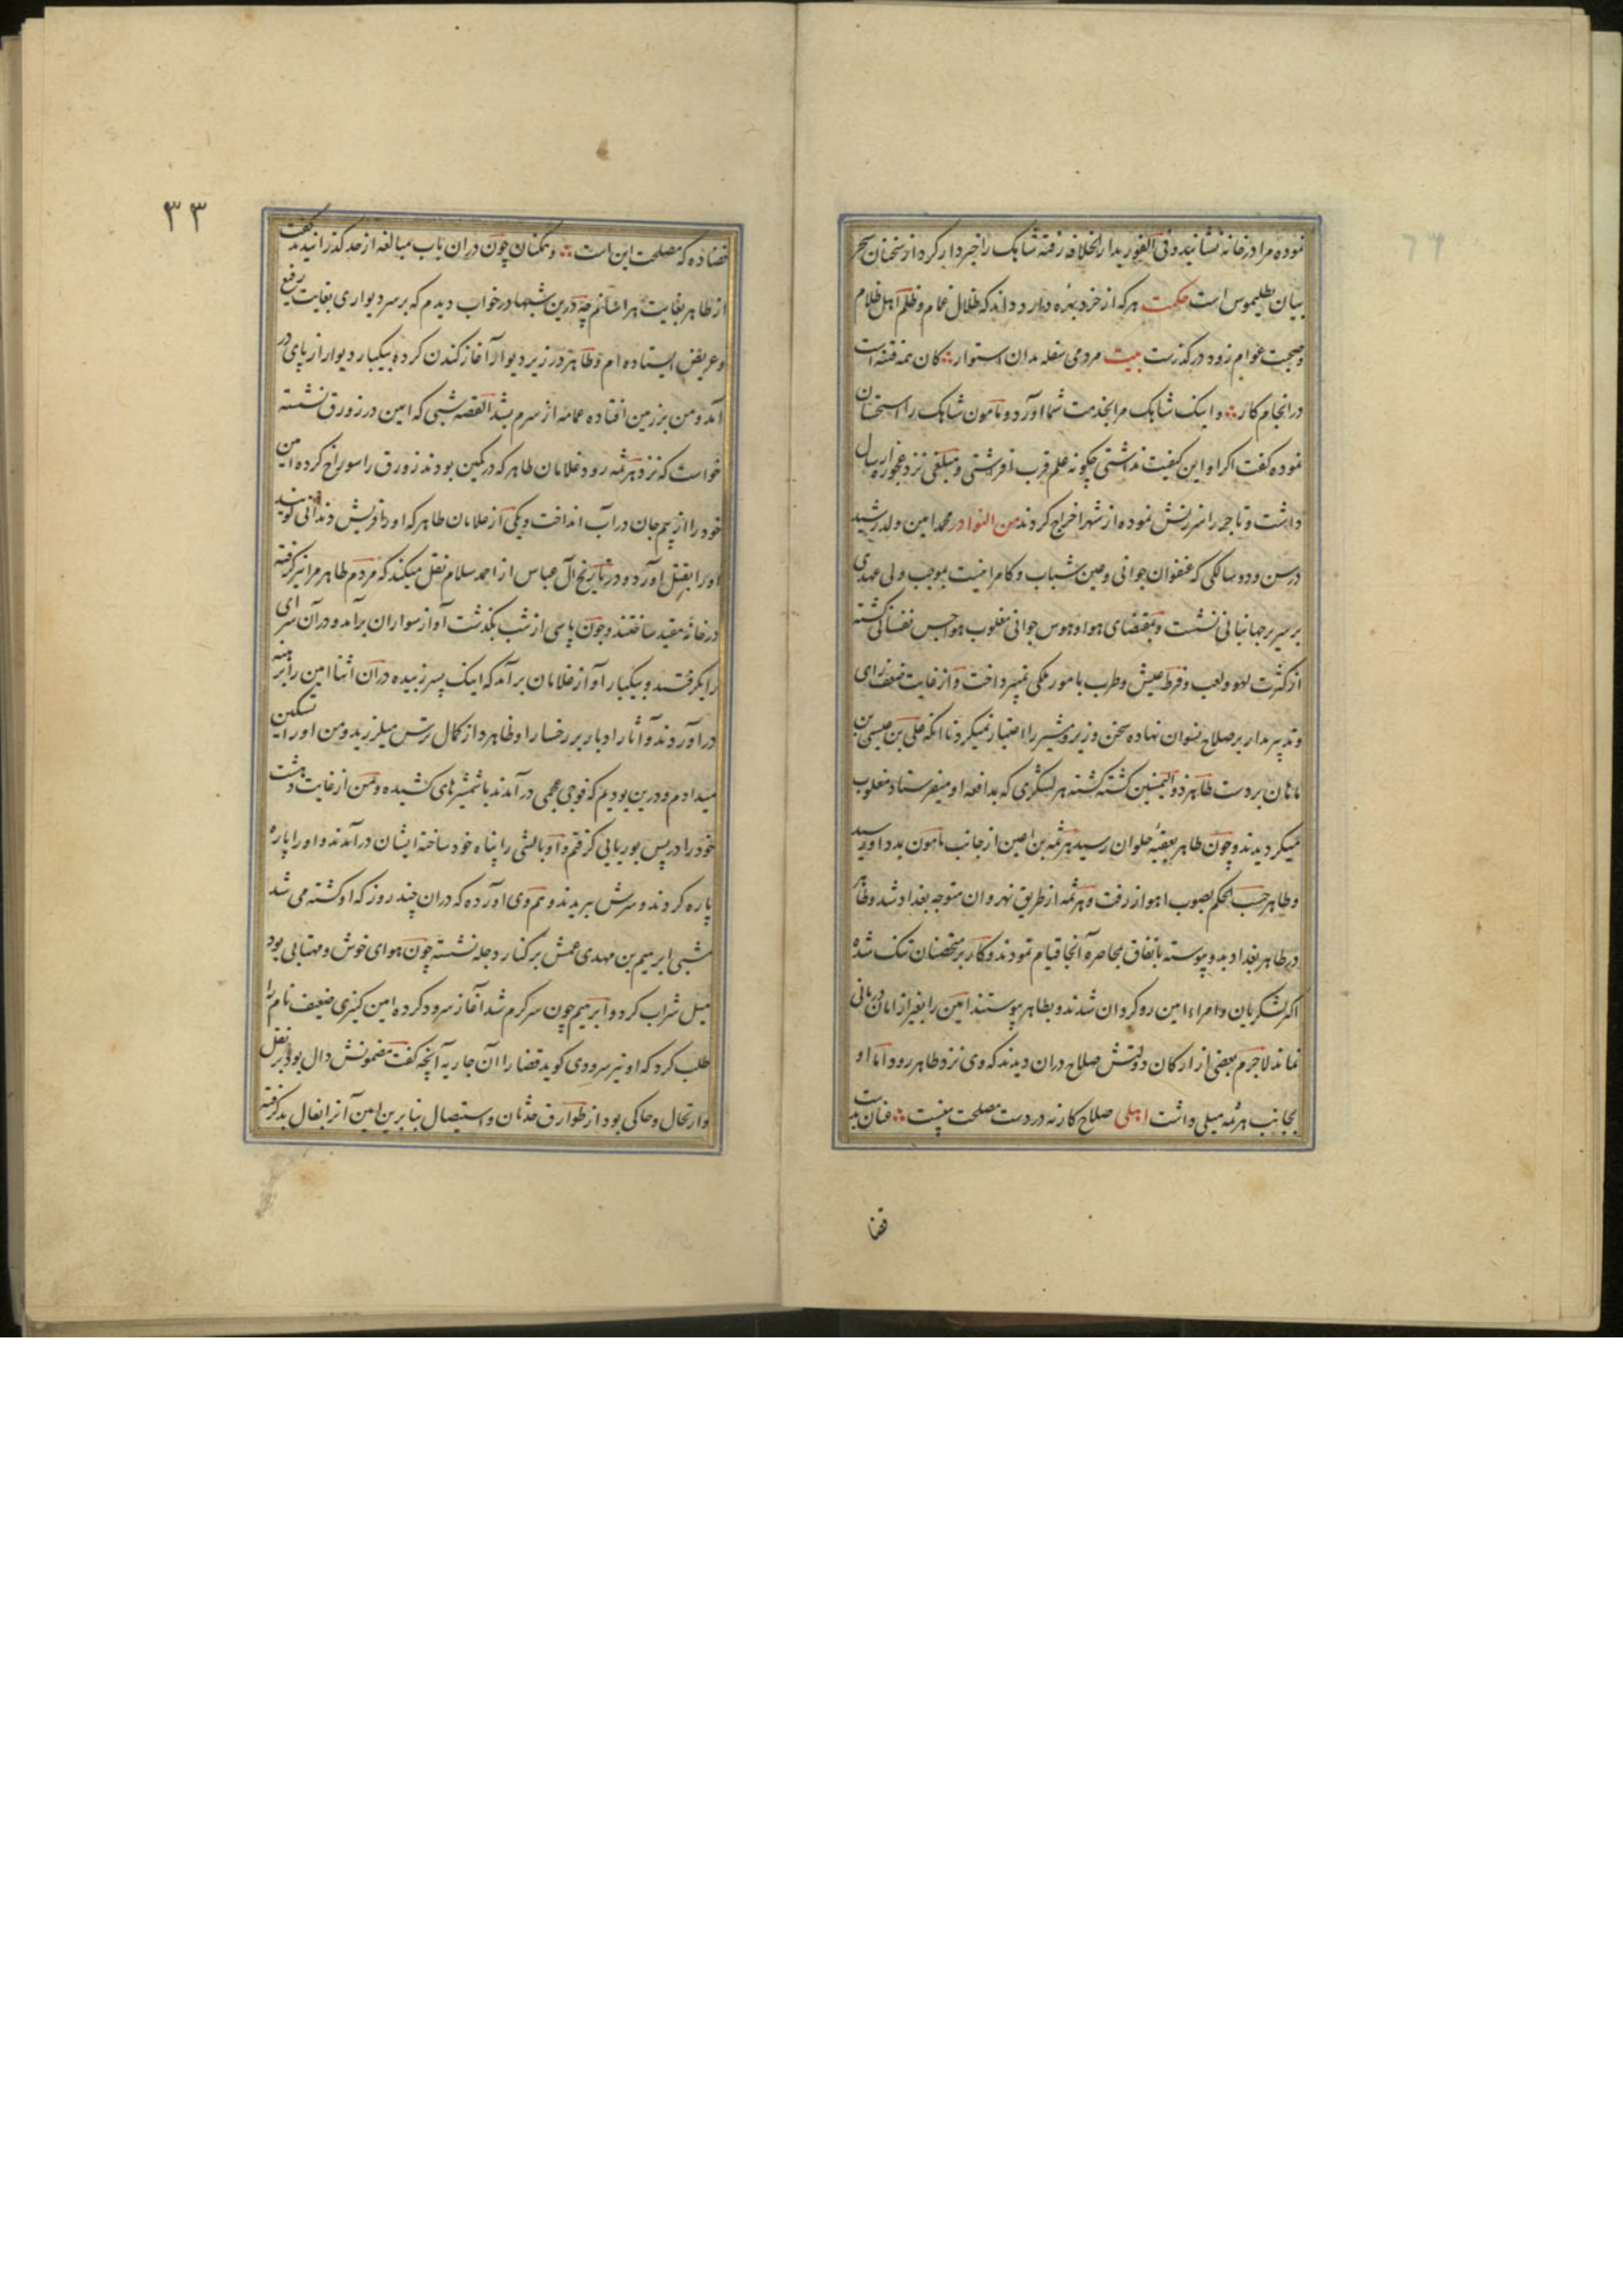 نموده مرا در خانه نشانید و فی الفور بدار الخلافه رفته شاهک را خبردار کرد از سخنان سحر
بیان بطلیموس است حکمت هر که از خرد بهره دارد داند که ظلال غمام و ظلم اهل ظلام
و صحبت عوام زود در گذرست بیت مردمی سفله مدان استوار کان همه فتنه است
در انجام کار و اینک شاهک مرا بخدمت شما آورد و مامون شاهک را استحسان
نموده گفت اگر او این کیفیت نداشتی چگونه علم قرب افراشتی و مبلغی نزد عجوزه ارسال
داشت و تاجر را سرزنش نموده از شهر اخراج کردند من النوادر محمد امین ولد رشید
در سن و دو سالگی که عنفوان جوانی و حین شباب و کامرانیست بموجب ولی عهدی
بر سریر جهانبانی نشست و بمقتضای هوا و هوس جوانی مغلوب هواجس نفسانی گشته
از کثرت لهو و لعب و فرط عیش و طرب بامور ملکی نمیپرداخت و از غایت ضعف رای
و تدبیر مدار بر صلاح نسوان نهاده سخن وزیر و مشیر را اعتبار نمیکرد تا انکه علی بن عیسی بن
ماهان بر دست طاهر ذو الیمینین کشته گشته هر لشکری که بمدافعه او میفرستاد مغلوب
میگردیدند و چون طاهر بعقبه حلوان رسید هرثمه بن اعین از جانب مامون بمدد او رسید
و طاهر حسب الحکم بصوب اهواز رفت و هرثمه از طریق نهروان متوجه بغداد شد و طاهر
در ظاهر بغداد بدو پیوسته باتفاق بمحاصره آنجا قیام نمودند و کار بر متحصنان تنک شده
اکثر لشکریان و امراء امین رو کردان شدند و بطاهر پیوستند امین را بغیر از امان درمانی
نماند لاجرم بعضی از ارکان دولتش صلاح دران دیدند که وی نزد طاهر رود اما او
بجانب هرثمه میلی داشت اهلی صلاح کار نه در دست مصلحت بینست عنان بدست
قضا
٣٣
قضا ده که مصلحت این است و همکنان چون دران باب مبالغه از حد گذرانیدند گفت
از طاهر بغایت هراسانم چه درین شبها در خواب دیدم که بر سر دیواری بغایت رفیع
و عریض ایستاده ام و طاهر در زیر دیوار آغاز کندن کرده بیکبار دیوار از پای در
آمد و من بر زمین افتاده عمامه از سرم بشد القصه شبی که امین در زورق نشسته
خواست که نزد هرثمه رود غلامان طاهر که در کمین بودند زورق را سوراخ کرده امین
خود را از بیم جان در آب انداخت و یکی از غلامان طاهر که او را قریش دندانی گویند
او را بقتل آورد و در تاریخ آل عباس از احمد سلام نقل میکند که مردم طاهر مرا نیز گرفته
در خانه مقید ساختند و چون پاسی از شب بگذشت آواز سواران برآمد و در آن سرای
را بگرفتند و بیکبار آواز غلامان برآمد که اینک پسر زبیده دران اثنا امین را برهنه
در آوردند و آثار ادبار بر رخسار او ظاهر و از کمال ترس میلرزید و من او را تسکین
میدادم و درین بودیم که فوجی عجمی در آمدند با شمشیرهای کشیده و من از غایت دهشت
خود را در پس بوریایی گرفتم و او بالشی را پناه خود ساخته ایشان درآمدند و او را پاره
پاره کردند و سرش ببریدند و هم وی آورده که دران چند روز که او کشته می شد
شبی ابرهیم بن مهدی عمش بر کنار دجله نشسته چون هوای خوش و مهتابی بود
میل شراب کرد و ابرهیم چون سرگرم شد آغاز سرود کرده امین کنیزی ضعیف نام را
طلب کرد که او نیز سرودی گوید قضا را آن جاریه آنچه گفت مضمونش دال بود بر نقل
و ارتحال و حاکی بود از طوارق حدثان و استیصال بنا برین امین آنرا بفال بد گرفته